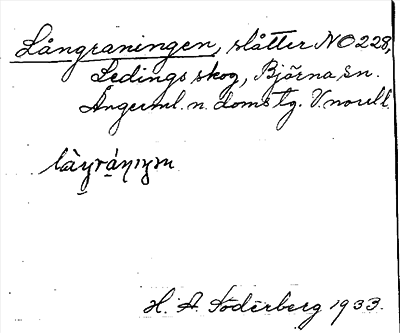 Långraningen, slåtter NO 228,
Ledings skog, Björna sn.
Ångerml. n. doms tg. V. norrl.
H. A. Söderberg 1933.